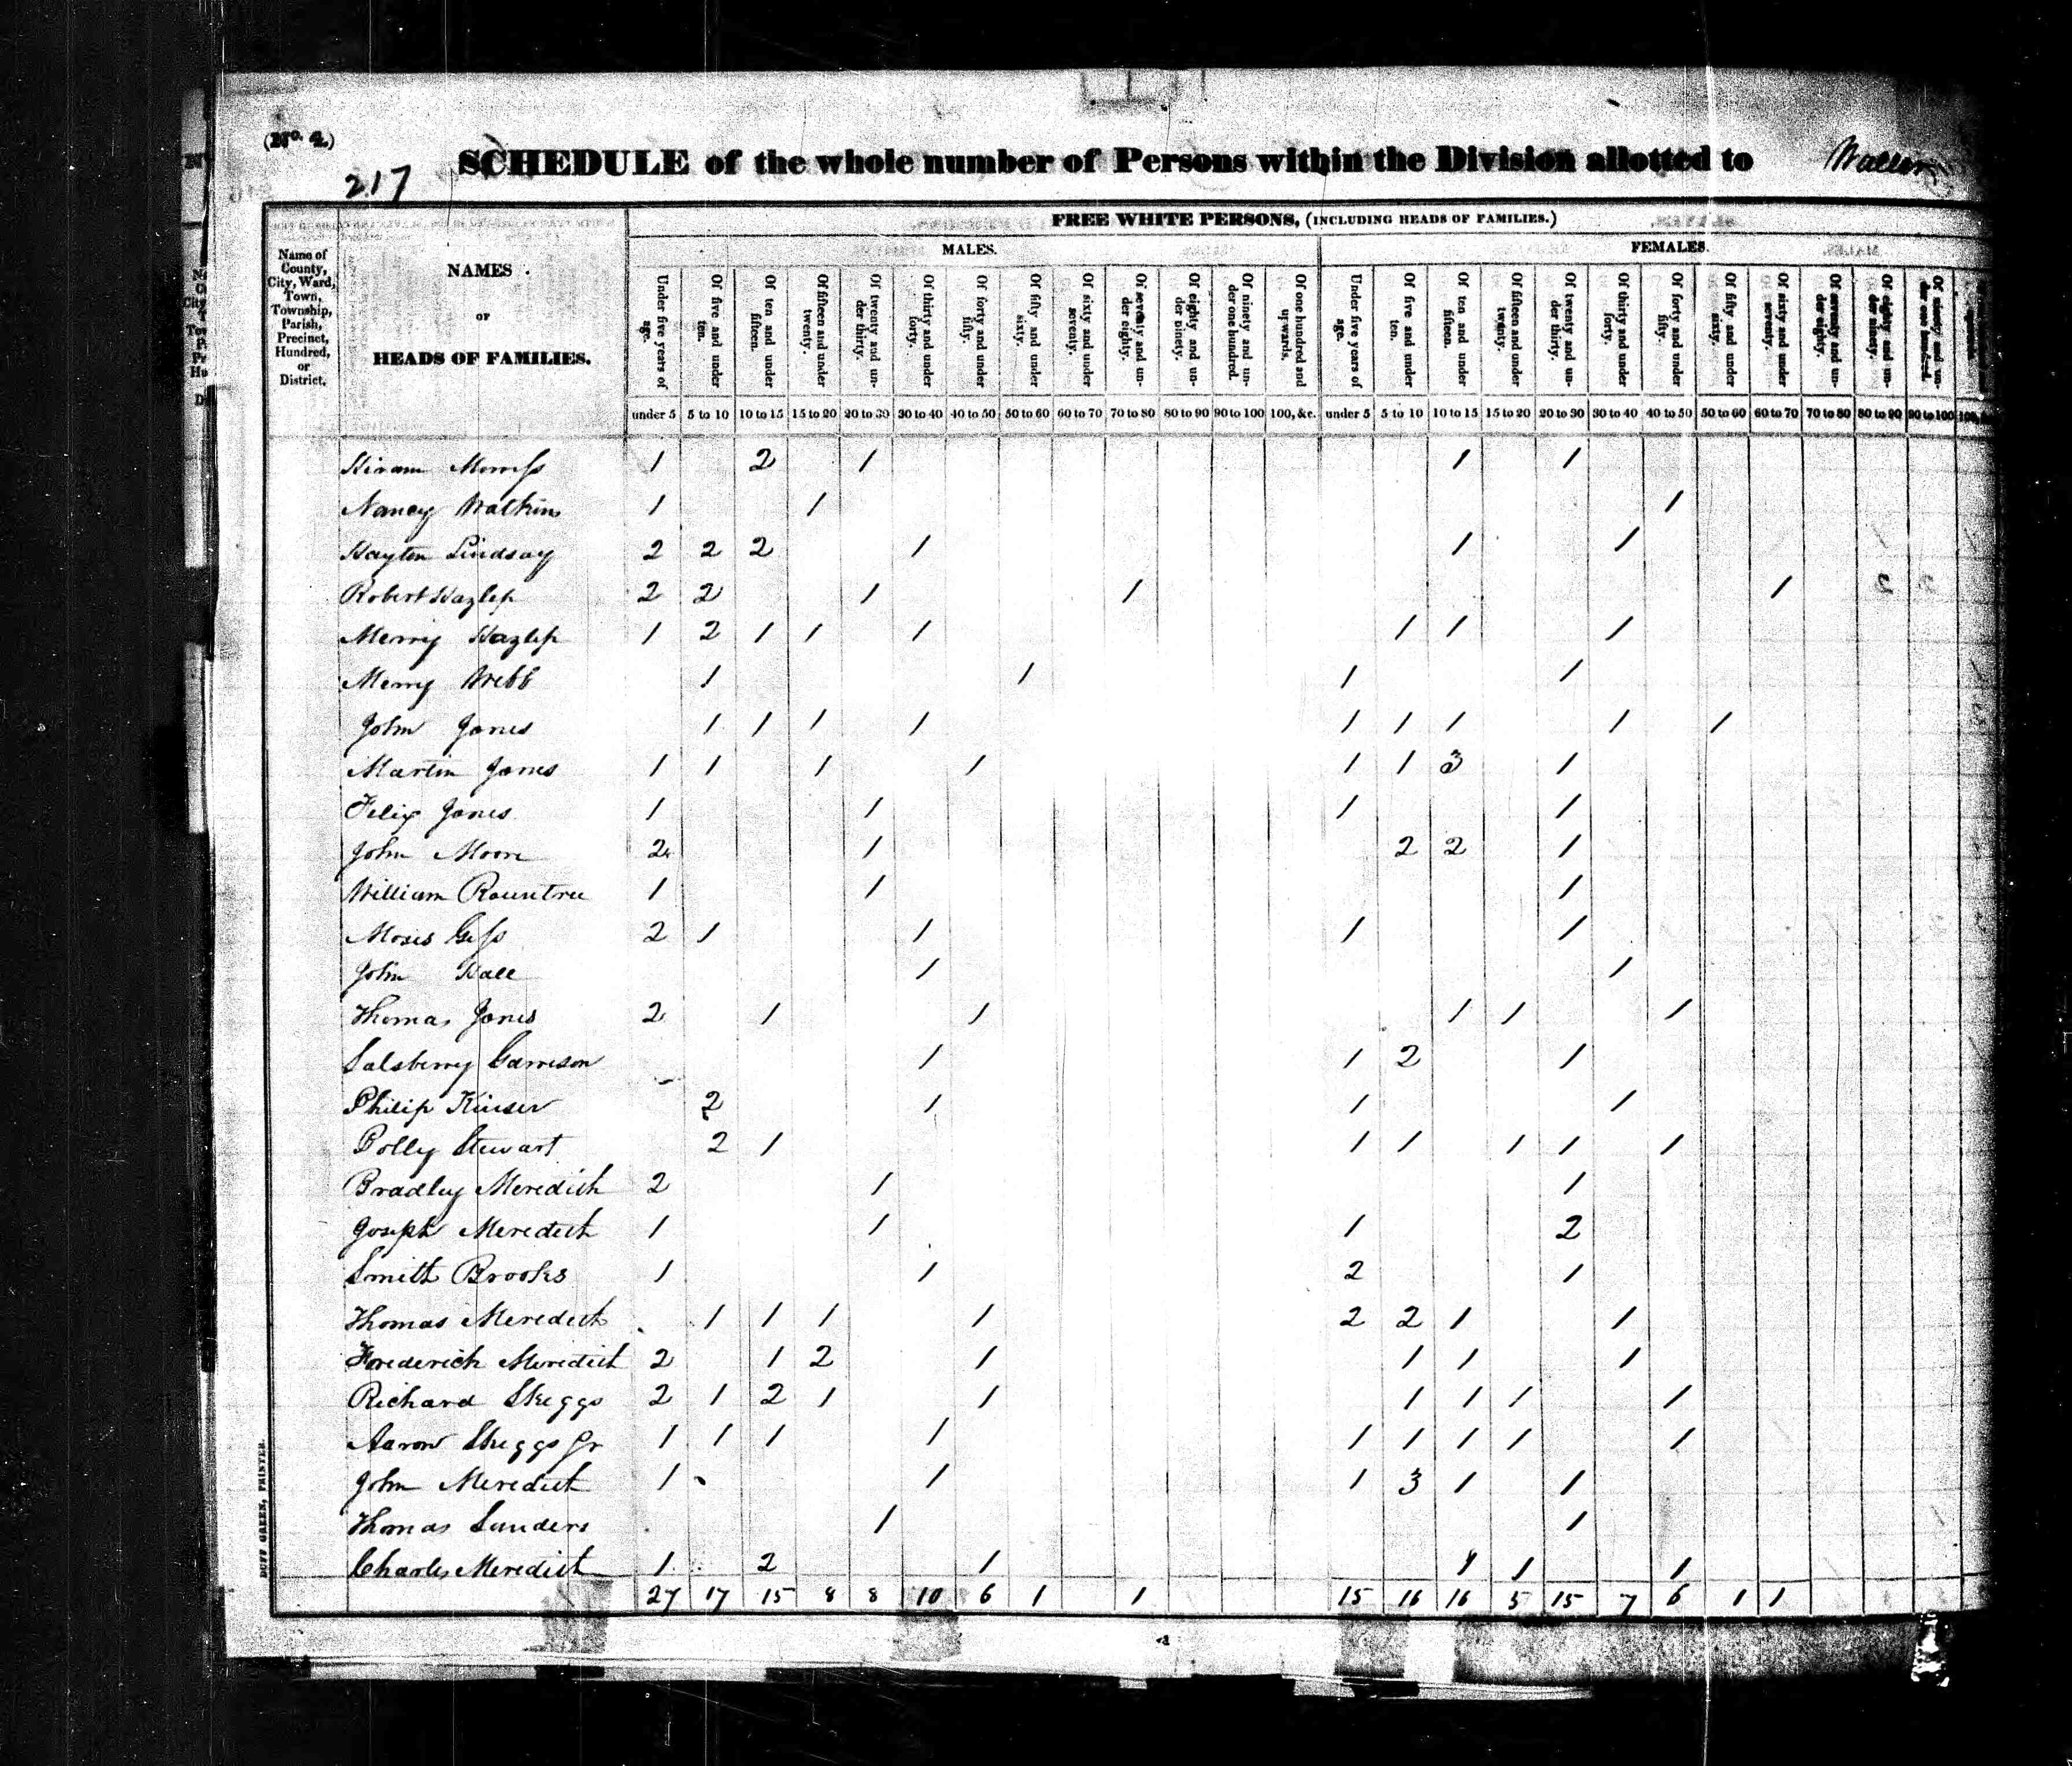 (No. 4.)
SCHEDULE of the whole number of Persons within the Division allotted to Waller
217
FREE WHITE PERSONS, (INCLUDING HEADS OF FAMILIES.)
MALES. FEMALES.
Name of County, City, Ward, Town, Township, Parish, Precinct, Hundred, or District.
NAMES OF HEADS OF FAMILIES.
Under five years of age. Of five and under ten. Of ten and under fifteen. Of fifteen and under twenty. Of twenty and under thirty. Of thirty and under forty. Of forty and under fifty. Of fifty and under sixty. Of sixty and under seventy. Of seventy and under eighty. Of eighty and under ninety. Of ninety and under one hundred. Of one hundred and upwards. Under five years of age. Of five and under ten. Of ten and under fifteen. Of fifteen and under twenty. Of twenty and under thirty. Of thirty and under forty. Of forty and under fifty. Of fifty and under sixty. Of sixty and under seventy. Of seventy and under eighty. Of eighty and under ninety. Of ninety and under one hundred.
under 5 5 to 10 10 to 15 15 to 20 20 to 30 30 to 40 40 to 50 50 to 60 60 to 70 70 to 80 80 to 90 90 to 100 100, &c. under 5 5 to 10 10 to 15 15 to 20 20 to 30 30 to 40 40 to 50 50 to 60 60 to 70 70 to 80 80 to 90 90 to 100
Hiram Morriss 1 2 1 1 1
Nancy Watkins 1 1 1
Hayten Lindsay 2 2 2 1 1 1
Robert Hazlep 2 2 1 1 1
Merry Hazlep 1 2 1 1 1 1 1 1
Merry Webb 1 1 1 1
John Jones 1 1 1 1 1 1 1 1 1
Martin Jones 1 1 1 1 1 1 3 1
Felix Jones 1 1 1 1
John Moore 2 1 2 2 1
William Rountree 1 1 1
Moses Gess 2 1 1 1 1
John Hall 1 1
Thomas Jones 2 1 1 1 1 1
Salsberry Garrison 1 1 2 1
Philip Kinser 2 1 1 1
Polly Stewart 2 1 1 1 1 1 1
Bradley Meredith 2 1 1
Joseph Meredith 1 1 1 2
Smith Brooks 1 1 2 1
Thomas Meredith 1 1 1 1 2 2 1 1
Frederick Meredith 2 1 2 1 1 1 1
Richard Skeggs 2 1 2 1 1 1 1 1 1
Aaron Skeggs Jr 1 1 1 1 1 1 1 1 1
John Meredith 1 1 1 3 1 1
Thomas Sanders 1 1
Charles Meredith 1 2 1 1 1 1
27 17 15 8 8 10 6 1 1 15 16 16 5 15 7 6 1 1
DUFF GREEN, PRINTER.